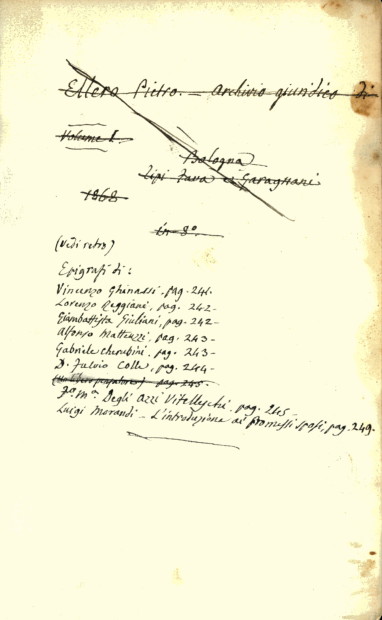 Ellero Pietro. = Archivio giuridico di
Volume I.
Bologna
Tipi Fava e Garagnani
1868
in-8°
(Vedi retro)
Epigrafi di:
Vincenzo Ghinassi, pag. 241.
Lorenzo Reggiani, pag. 242-
Giambattista Giuliani, pag. 242-
Alfonso Matteuzzi, pag. 243-
Gabriele Cherubini, pag. 243-
D. Fulvio Colle, pag. 244-
pag. 245-
Degli Azzi Vitelleschi, pag. 245-
Luigi Morandi - L'introduzione ai Promessi Sposi, pag. 249.